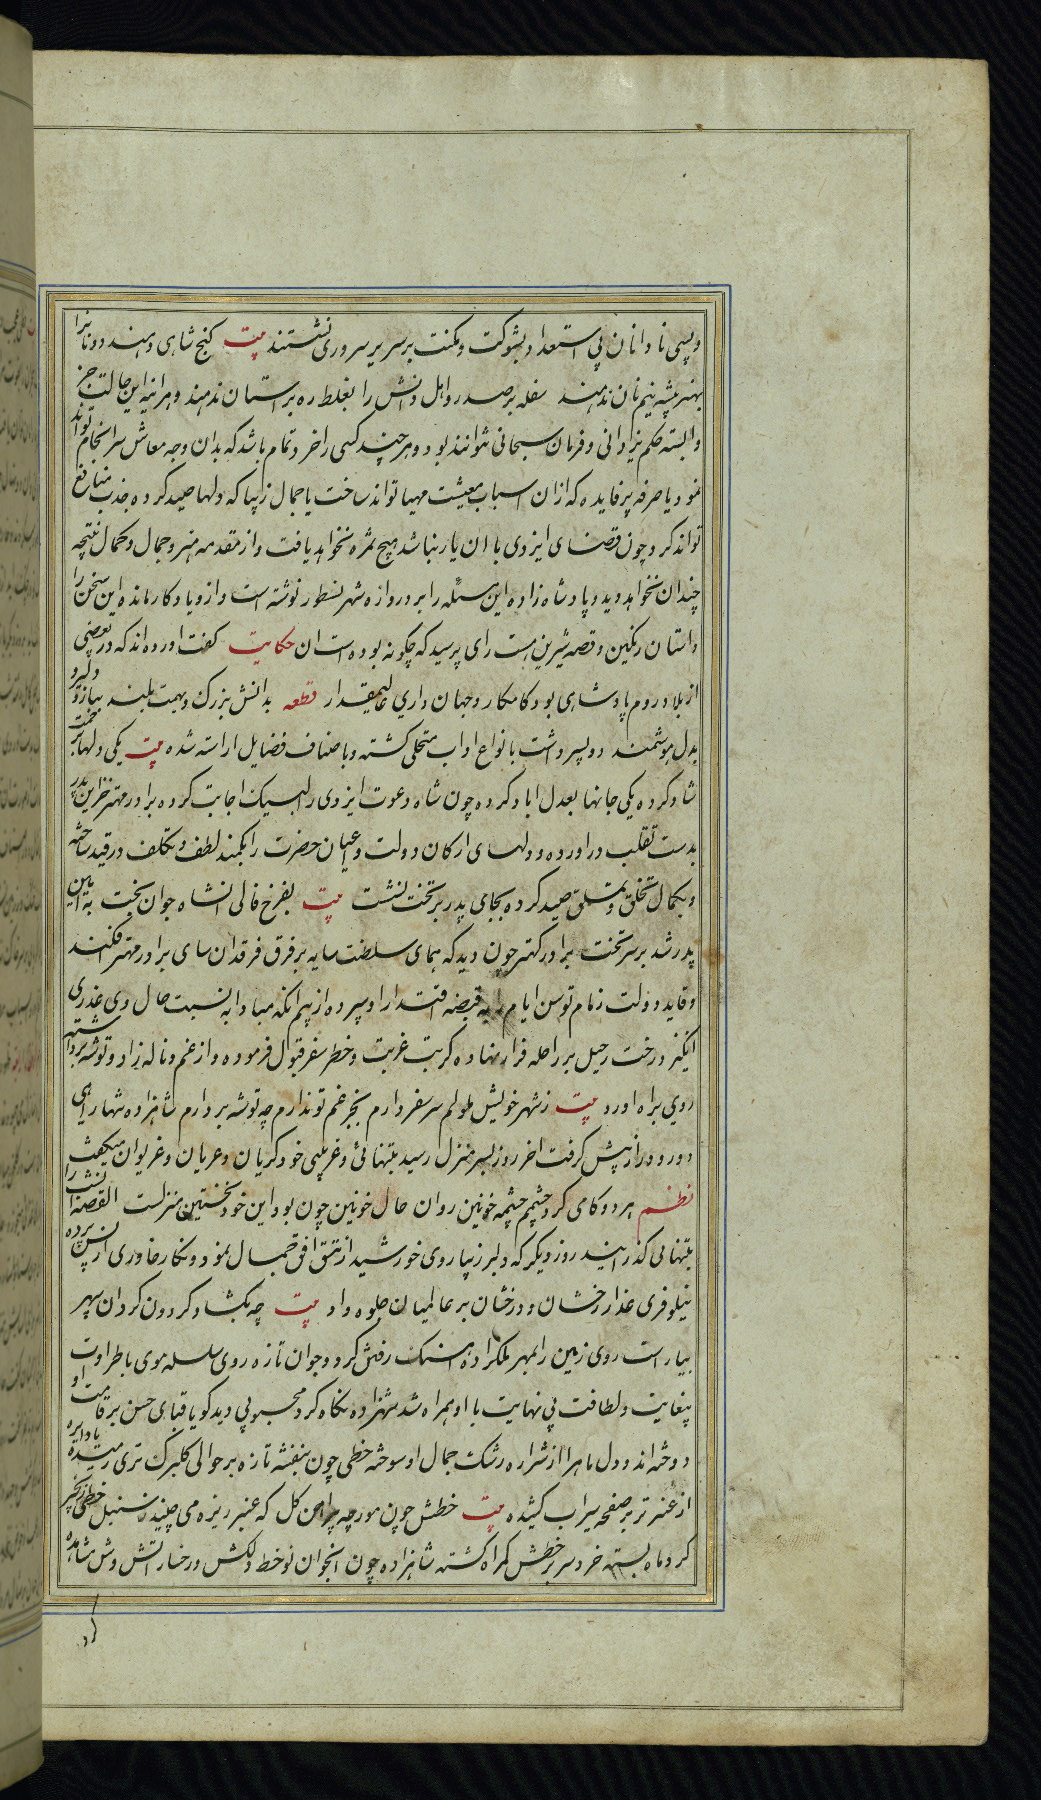 و بسی نادانان بی استعداد بشوکت و مکنت بر سریر سروری نشستند بیت گنج شاهی دهند دونانرا
بهنر پیشه نیم نان ندهند سفله بر صدر و اهل دانش را بغلط ره بر آستان ندهند و هرآینه این حالت جز
وابسته حکم یزدانی و فرمان سبحانی نتوانذ بود و هرچند کسی را خرد تمام باشد که بدان وجه معاش سرانجام تواند
نمود یا حرفه پر فایده که ازان اسباب معیشت مهیا تواند ساخت یا جمال زیبا که دلها صید کرده جذب منافع
تواند کرد چون قضای ایزدی با ان یار نباشد هیچ ثمره نخواهد یافت و از مقدمه هنر و جمال و کمال نتیجه
چندان نخواهد دید و پادشاه زاده این مسئله را بر دروازه شهر نسطور نوشته است و ازو یادکار مانده این سخن را
داستان رنکین و قصه شیرین هست رای پرسید که چکونه بوده است ان حکایت کفت اورده اند که در بعضی
از بلاد روم پادشاهی بود کامکار و جهان داری عالیمقدار قطعه بدانش بزرک و بهمت بلند ببازو دلیر و
بدل هوشمند دو پسر داشت بانواع اداب متحلی کشته و باصناف فضایل اراسته شده بیت یکی دلها بمهر
شاد کرده یکی جانها بعدل اباد کرده چون شاه دعوت ایزدی را لبیک اجابت کرده برادر مهتر خزاین پدر
بدست تقلب دراورده و دلهای ارکان دولت و اعیان حضرت را بکمند لطف و تکلف در قید ساخته
و بکمال تخلق و تملق صید کرده بجای پدر بر تخت نشست بیت بفرخ فالی انشاه جوان بخت به ایین
پدر شد بر سر تخت برادر کهتر چون دید که همای سلطنت سایه بر فرق فرقدان سای برادر مهتر فکند
و قاید دولت زمام توسن ایام را به قبضه اقتدار او سپرده از بیم انکه مبادا به نسبت حال وی غدری
انکیزد رخت رحیل بر راحله فرار نهاده کربت غربت و خطر سفر قبول فرموده و از غم و ناله زاد و توشه برداشته
روی براه اورد بیت ز شهر خویش ملولم سر سفر دارم بجز غم تو ندارم چه توشه بردارم شاهزاده تنها راهی
دور و دراز پیش کرفت اخر روز بسر منزل رسید بتنهائی و غریبی خود کریان و عریان و غریوان میکفت
نظم هر دو کامی کرد چشمم چشمه خونین روان حال خونین چون بود این خود نخستین منزلست القصه انشب را
بتنهایی کذرانید روز دیکر که دلبر زیبا روی خورشید از تتق افق جمال نمود و نکار خاوری از پس پرده
نیلوفری عذار رخشان و درخشان بر عالمیان جلوه داد بیت چه بکشاد کردون کردان سپهر
بیاراست روی زمین را بمهر ملکزاده اهنک رفتن کرد و جوان تازه روی سلسله موی با طراوت
بیغایت و لطافت بی نهایت با او همراه شد شهزاده نکاه کرد محبوبی دید کویا قبای حسن بر قامت او
دوخته اند و دل ماه را از شراره رشک جمال او سوخته خطی چون بنفشه تازه بر حوالی کلبرک تری دمیده یا دایره
از عنبر تر بر صفحه سیراب کشیده بیت خطش چون مورچه پیرامن کل که عنبر ریزه می چیند ز سنبل خطی زنجیر
کرد ماه بسته خرد سر بر خطش کمراه کشته شاهزاده چون انجوان نوخط دلکش و رخسار اتش وش مشاهده
کرد